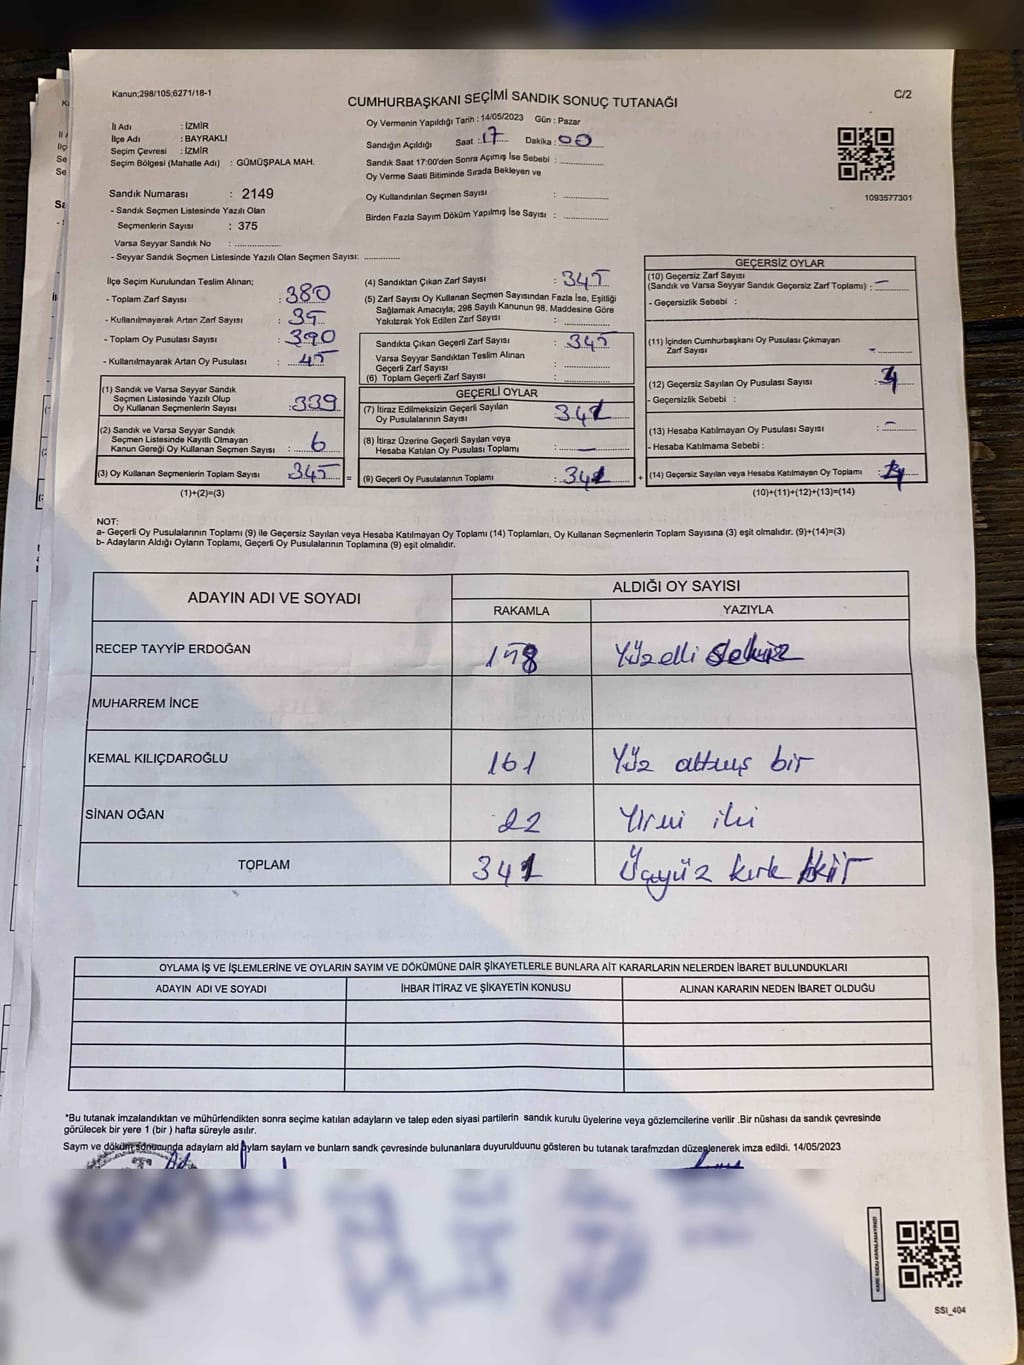 Kanun;298/105;6271/18-1
CUMHURBAŞKANI SEÇİMİ SANDIK SONUÇ TUTANAĞI
C/2
İl Adı : İZMİR
İlçe Adı : BAYRAKLI
Seçim Çevresi : İZMİR
Seçim Bölgesi (Mahalle Adı) : GÜMÜŞPALA MAH.
Sandık Numarası : 2149
- Sandık Seçmen Listesinde Yazılı Olan
Seçmenlerin Sayısı : 375
Varsa Seyyar Sandık No : ................
- Seyyar Sandık Seçmen Listesinde Yazılı Olan Seçmen Sayısı: .............
Oy Vermenin Yapıldığı Tarih : 14/05/2023 Gün : Pazar
Sandığın Açıldığı Saat : 17 Dakika : 00
Sandık Saat 17:00'den Sonra Açımış İse Sebebi : ...............
Oy Verme Saati Bitiminde Sırada Bekleyen ve
Oy Kullandırılan Seçmen Sayısı : ...............
Birden Fazla Sayım Döküm Yapılmış İse Sayısı : ...............
1093577301
İlçe Seçim Kurulundan Teslim Alınan;
- Toplam Zarf Sayısı : 380
- Kullanılmayarak Artan Zarf Sayısı : 35
- Toplam Oy Pusulası Sayısı : 390
- Kullanılmayarak Artan Oy Pusulası : 45
(1) Sandık ve Varsa Seyyar Sandık
Seçmen Listesinde Yazılı Olup
Oy Kullanan Seçmenlerin Sayısı : 339
(2) Sandık ve Varsa Seyyar Sandık
Seçmen Listesinde Kayıtlı Olmayan
Kanun Gereği Oy Kullanan Seçmen Sayısı : 6
(3) Oy Kullanan Seçmenlerin Toplam Sayısı : 345
(1)+(2)=(3)
(4) Sandıktan Çıkan Zarf Sayısı : 345
(5) Zarf Sayısı Oy Kullanan Seçmen Sayısından Fazla İse, Eşitliği
Sağlamak Amacıyla; 298 Sayılı Kanunun 98. Maddesine Göre
Yakılarak Yok Edilen Zarf Sayısı : ...............
Sandıkta Çıkan Geçerli Zarf Sayısı : 345
Varsa Seyyar Sandıktan Teslim Alınan
Geçerli Zarf Sayısı : ...............
(6) Toplam Geçerli Zarf Sayısı : ...............
GEÇERLİ OYLAR
(7) İtiraz Edilmeksizin Geçerli Sayılan
Oy Pusulalarının Sayısı : 341
(8) İtiraz Üzerine Geçerli Sayılan veya
Hesaba Katılan Oy Pusulası Toplamı : —
= (9) Geçerli Oy Pusulalarının Toplamı : 341
GEÇERSİZ OYLAR
(10) Geçersiz Zarf Sayısı
(Sandık ve Varsa Seyyar Sandık Geçersiz Zarf Toplamı) : —
- Geçersizlik Sebebi :
(11) İçinden Cumhurbaşkanı Oy Pusulası Çıkmayan
Zarf Sayısı : —
(12) Geçersiz Sayılan Oy Pusulası Sayısı : 4
- Geçersizlik Sebebi :
(13) Hesaba Katılmayan Oy Pusulası Sayısı : —
- Hesaba Katılmama Sebebi :
+ (14) Geçersiz Sayılan veya Hesaba Katılmayan Oy Toplamı : 4
(10)+(11)+(12)+(13)=(14)
NOT:
a- Geçerli Oy Pusulalarının Toplamı (9) ile Geçersiz Sayılan veya Hesaba Katılmayan Oy Toplamı (14) Toplamları, Oy Kullanan Seçmenlerin Toplam Sayısına (3) eşit olmalıdır. (9)+(14)=(3)
b- Adayların Aldığı Oyların Toplamı, Geçerli Oy Pusulalarının Toplamına (9) eşit olmalıdır.
ADAYIN ADI VE SOYADI ALDIĞI OY SAYISI
RAKAMLA YAZIYLA
RECEP TAYYİP ERDOĞAN 158 Yüzelli Sekiz
MUHARREM İNCE
KEMAL KILIÇDAROĞLU 161 Yüz altmış bir
SİNAN OĞAN 22 Yirmi iki
TOPLAM 341 Üçyüz kırk bir
OYLAMA İŞ VE İŞLEMLERİNE VE OYLARIN SAYIM VE DÖKÜMÜNE DAİR ŞİKAYETLERLE BUNLARA AİT KARARLARIN NELERDEN İBARET BULUNDUKLARI
ADAYIN ADI VE SOYADI İHBAR İTİRAZ VE ŞİKAYETİN KONUSU ALINAN KARARIN NEDEN İBARET OLDUĞU
*Bu tutanak imzalandıktan ve mühürlendikten sonra seçime katılan adayların ve talep eden siyasi partilerin sandık kurulu üyelerine veya gözlemcilerine verilir .Bir nüshası da sandık çevresinde
görülecek bir yere 1 (bir ) hafta süreyle asılır.
Saym ve döküm sonucunda adaylarn ald oylarn saylarn ve bunlarn sandk çevresinde bulunanlara duyurulduunu gösteren bu tutanak tarafmzdan düzenlenerek imza edildi. 14/05/2023
KARE KODU KARALAMAYINIZ!
SSI_404